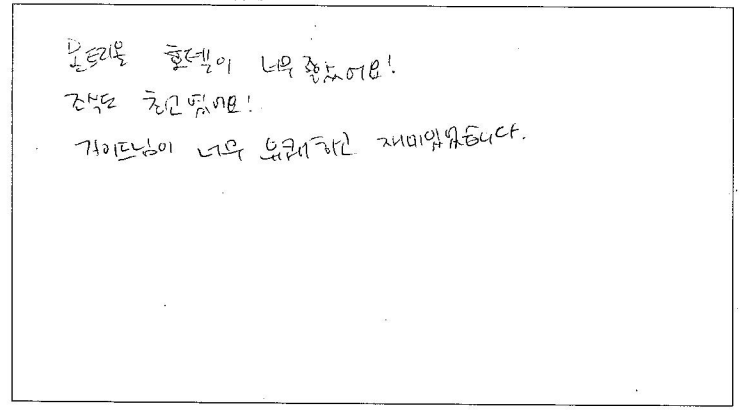 몬트리올 호텔이 너무 좋았어요!
조식도 최고였어요!
가이드님이 너무 유쾌하고 재미있었습니다.